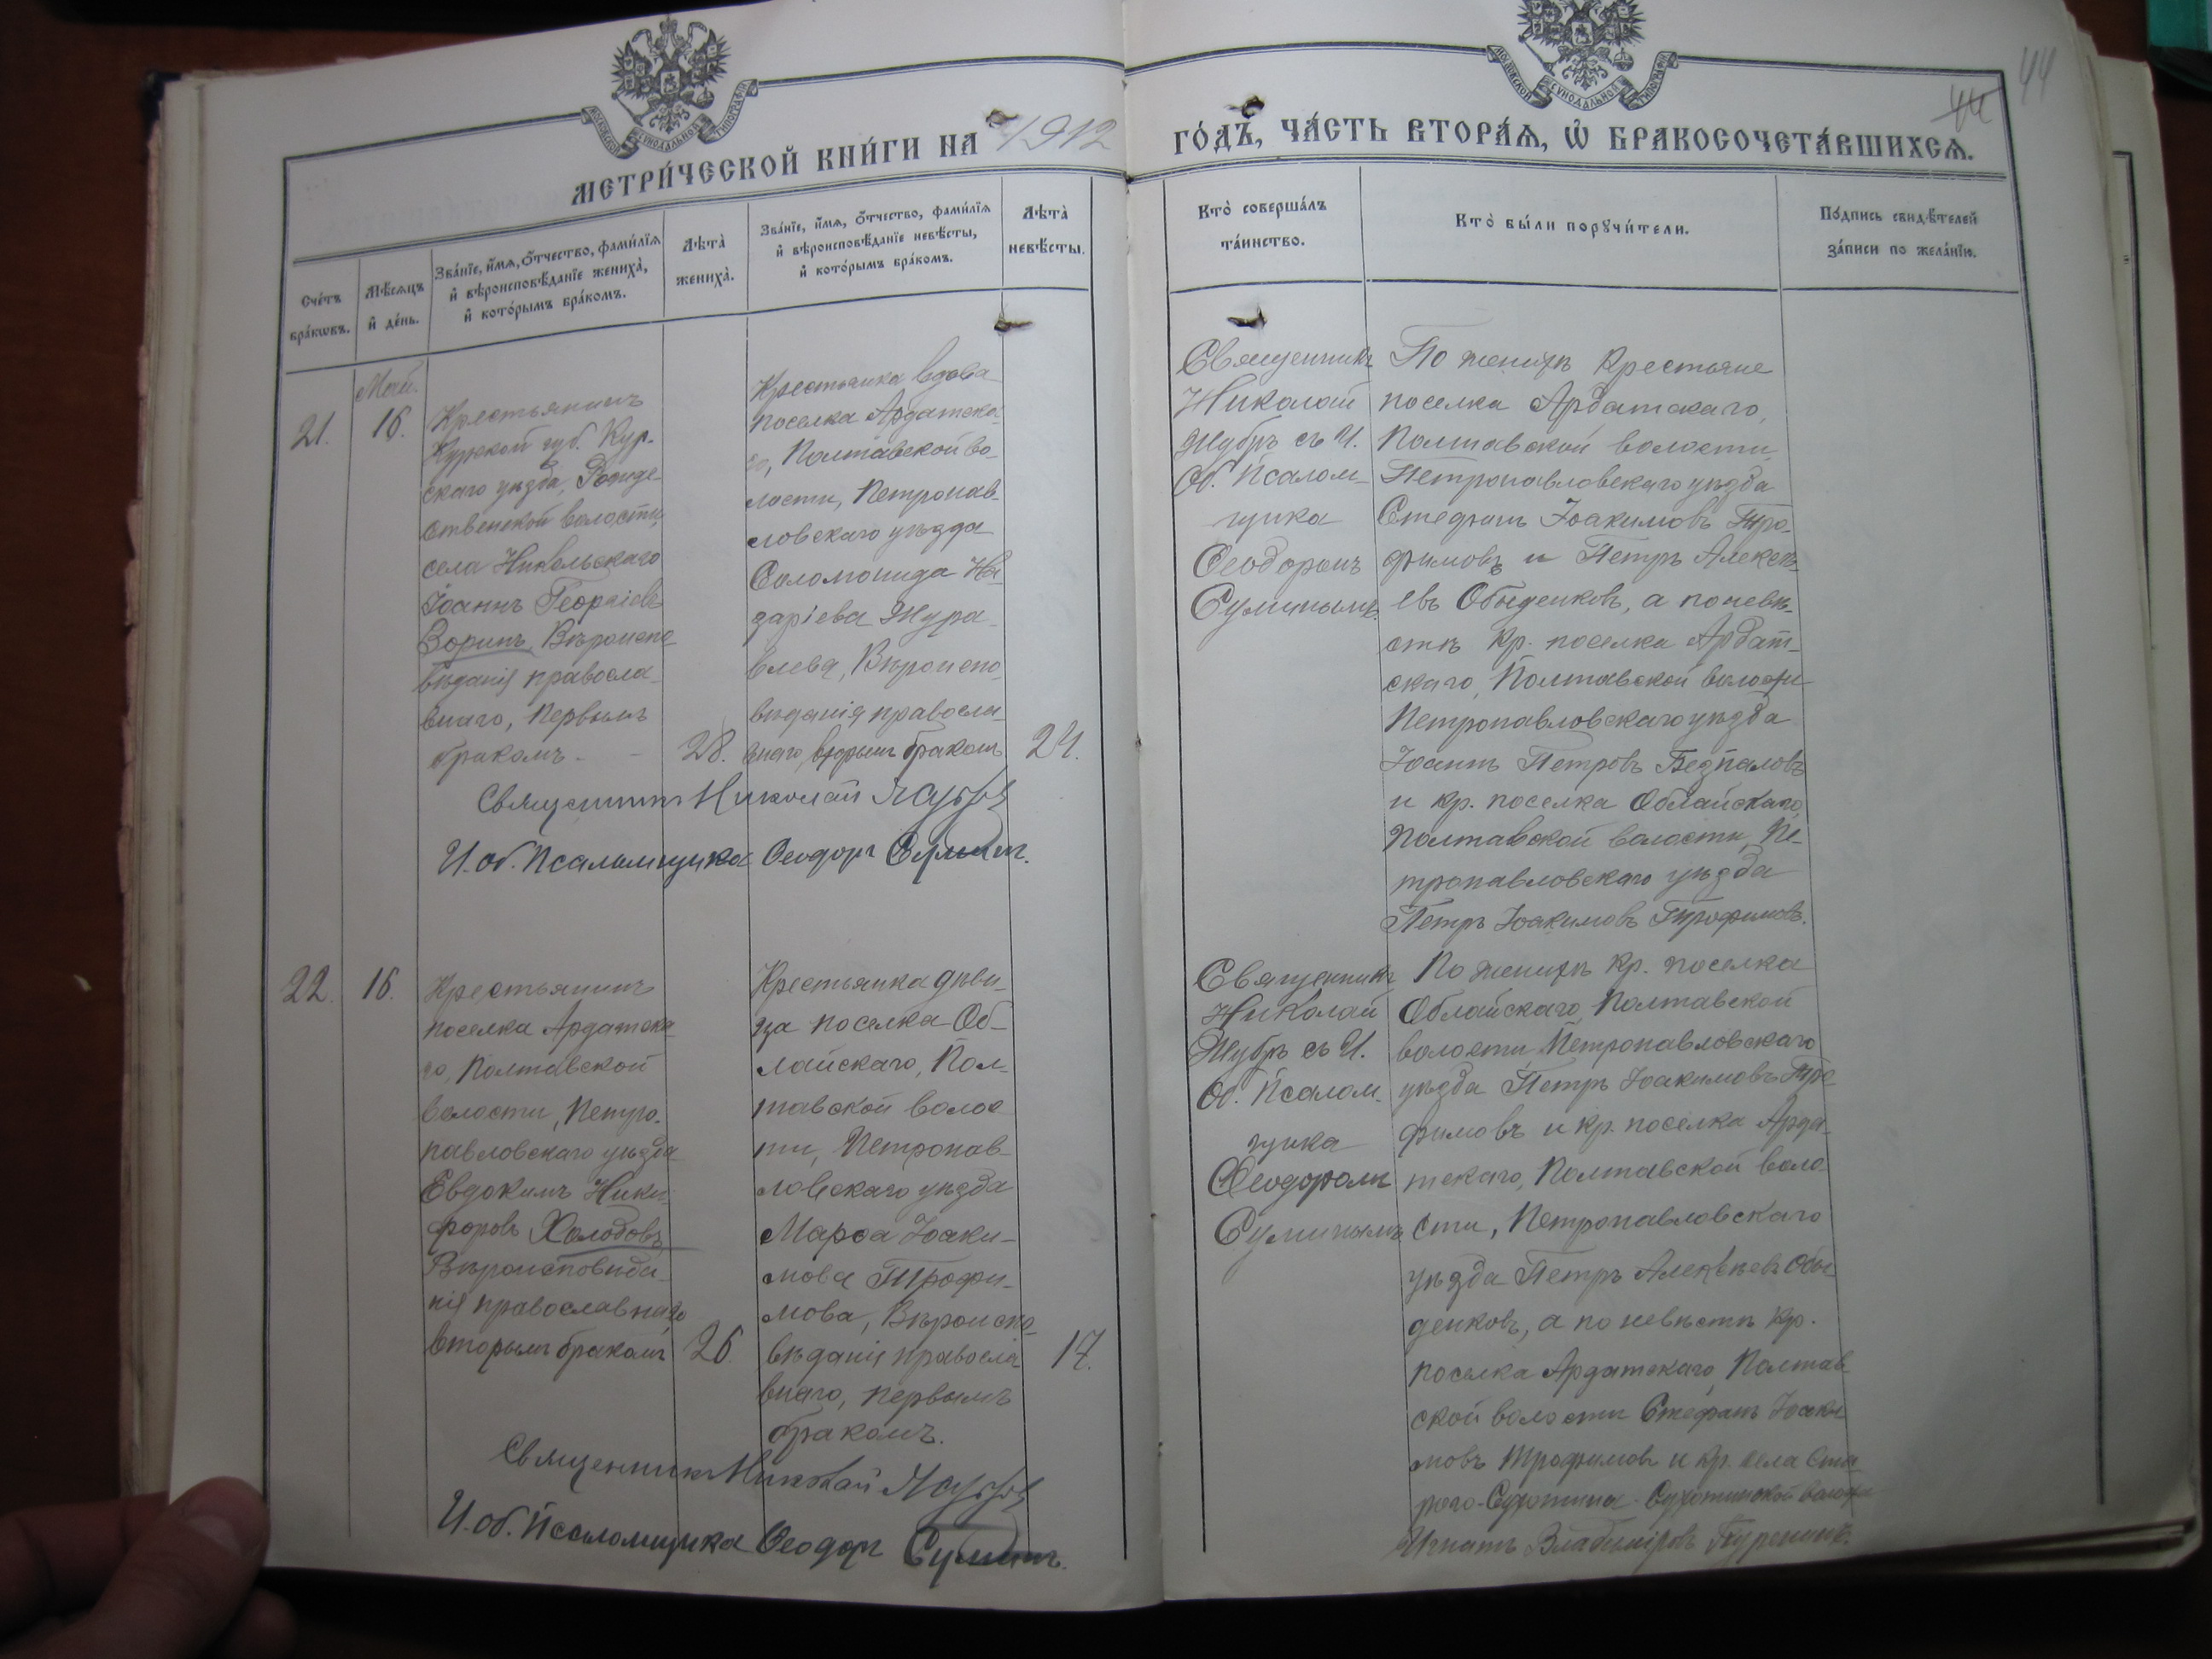 МОСКОВСКОЙ СѴНОДАЛЬНОЙ ТИПОГРАФІИ
МОСКОВСКОЙ СѴНОДАЛЬНОЙ ТИПОГРАФІИ
44
44
МЕТРИ́ЧЕСКОЙ КНИ́ГИ НА 1912
ГО́ДЪ, ЧА́СТЬ ВТОРА́Ѧ, Ѡ҆ БРАКОСОЧЕТА́ВШИХСѦ.
Сче́тъ
бра́кѡвъ.
Мѣ́сѧцъ
и҆ де́нь.
Зва́нїе, и҆́мѧ, ѻ҆́тчество, фами́лїѧ
и҆ вѣроисповѣ́данїе жениха̀,
и҆ кото́рымъ бра́комъ.
Лѣта̀
жениха̀.
Зва́нїе, и҆́мѧ, ѻ҆́тчество, фами́лїѧ
и҆ вѣроисповѣ́данїе невѣ́сты,
и҆ кото́рымъ бра́комъ.
Лѣта̀
невѣ́сты.
Кто̀ соверша́лъ
та́инство.
Кто̀ бы́ли порꙋчи́тели.
По́дпись свидѣ́телей
за́писи по жела́нїю.
21.
Май.
16.
Крестьянинъ
Курской губ. Кур-
скаго уѣзда, Рожде-
ственской волости,
села Никольскаго
Іоаннъ Георгіевъ
Зоринъ, Вѣроиспо-
вѣданія правосла-
внаго, первымъ
бракомъ.
28.
Крестьянка вдова
поселка Ардатска-
го, Полтавской во-
лости, Петропав-
ловскаго уѣзда
Соломонида На-
заріева Жура-
влева, Вѣроиспо-
вѣданія правосла-
внаго, вторымъ бракомъ
24.
Священникъ Николай Жубръ
И. об. Псаломщика Ѳеодоръ Сулимъ.
Священникъ
Николай
Жубръ съ И.
Об. Псалом-
щика
Ѳеодоромъ
Сулинымъ.
По женихѣ крестьяне
поселка Ардатскаго,
Полтавской волости,
Петропавловскаго уѣзда
Стефанъ Іоакимовъ Тро-
фимовъ и Петръ Алексѣ-
евъ Обыденковъ, а по невѣ-
стѣ кр. поселка Ардат-
скаго, Полтавской волости
Петропавловскаго уѣзда
Іоаннъ Петровъ Безпаловъ
и кр. поселка Облайскаго,
Полтавской волости, Пе-
тропавловскаго уѣзда
Петръ Іоакимовъ Трофимовъ.
22.
16.
Крестьянинъ
поселка Ардатска-
го, Полтавской
волости, Петро-
павловскаго уѣзда
Евдокимъ Ники-
форовъ Холодовъ
Вѣроисповѣда-
нія православнаго
вторымъ бракомъ
26.
Крестьянка дѣви-
ца поселка Об-
лайскаго, Пол-
тавской волос
ти, Петропав-
ловскаго уѣзда
Марѳа Іоаки-
мова Трофи-
мова, Вѣроиспо-
вѣданія правосла-
внаго, первымъ
бракомъ.
17.
Священникъ Николай Жубръ
И. об. Псаломщика Ѳеодоръ Сулимъ.
Священникъ
Николай
Жубръ съ И.
Об. Псалом-
щика
Ѳеодоромъ
Сулинымъ
По женихѣ кр. поселка
Облайскаго, Полтавской
волости Петропавловскаго
уѣзда Петръ Іоакимовъ Тро-
фимовъ и кр. поселка Арда-
тскаго, Полтавской воло
сти, Петропавловскаго
уѣзда Петръ Алексѣевъ Обы-
денковъ, а по невѣстѣ кр.
поселка Ардатскаго, Полтав
ской волости Стефанъ Іоаки
мовъ Трофимовъ и кр. села Ста-
раго-Сухотина Сухотинской волости
Игнатъ Владиміровъ